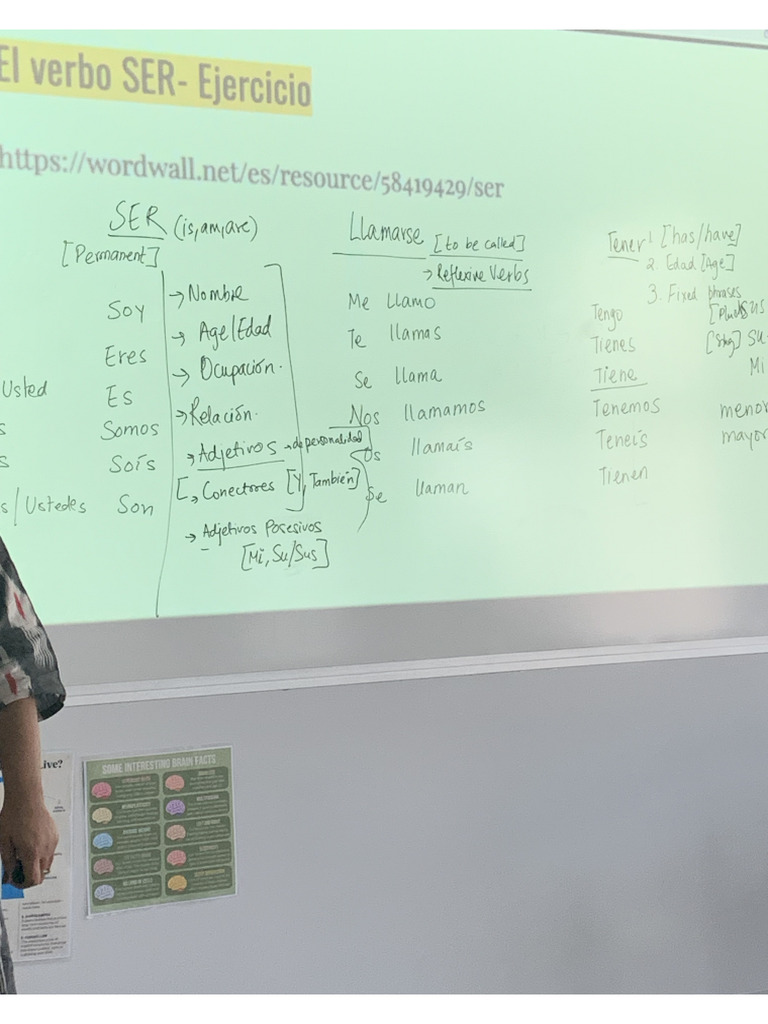 El verbo SER- Ejercicio
https://wordwall.net/es/resource/58419429/ser
SER (is, am, are)
[Permanent]
Soy
Eres
Usted Es
s Somos
s Soís
s / Ustedes Son
→ Nombre
→ Age/Edad
→ Ocupación.
→ Relación.
→ Adjetivos → de personalidad
[→ Conectores [Y, También]
→ Adjetivos Posesivos
[Mi, Su/Sus]
Llamarse [to be called]
→ Reflexive Verbs
Me llamo
Te llamas
Se llama
Nos llamamos
Os llamaís
Se llaman
Tener 1 [has/have]
2. Edad [Age]
3. Fixed phrases
Tengo
Tienes
Tiene
Tenemos
Teneís
Tienen
sus
[Sing] su
Mi
menor
mayor
ive?
SOME INTERESTING BRAIN FACTS